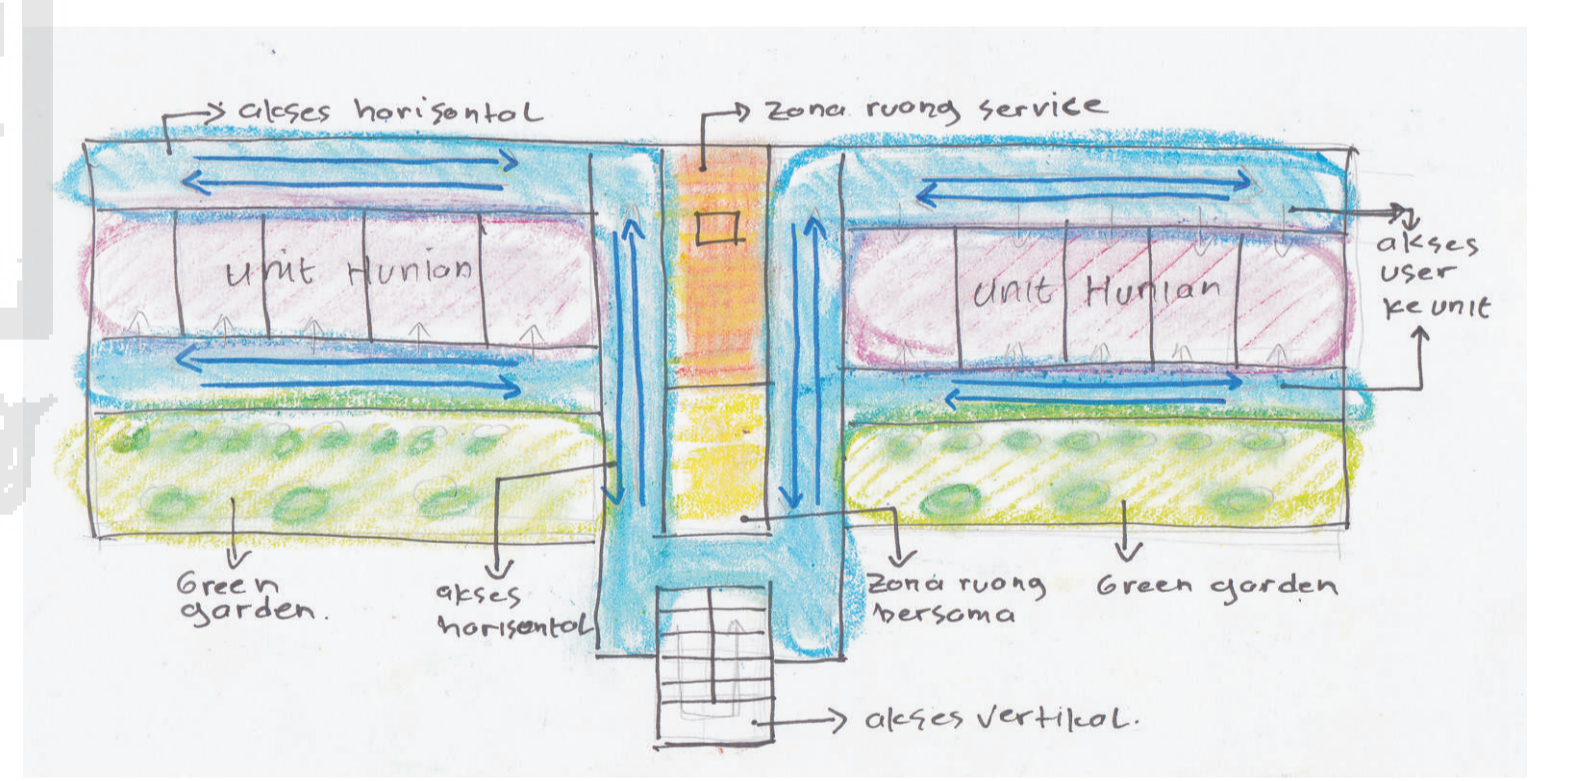 akses horisontal
zona ruang service
unit Hunian
unit Hunian
akses
user
ke unit
Green
garden.
akses
horisontal
zona ruang
bersama
Green garden
akses vertikal.